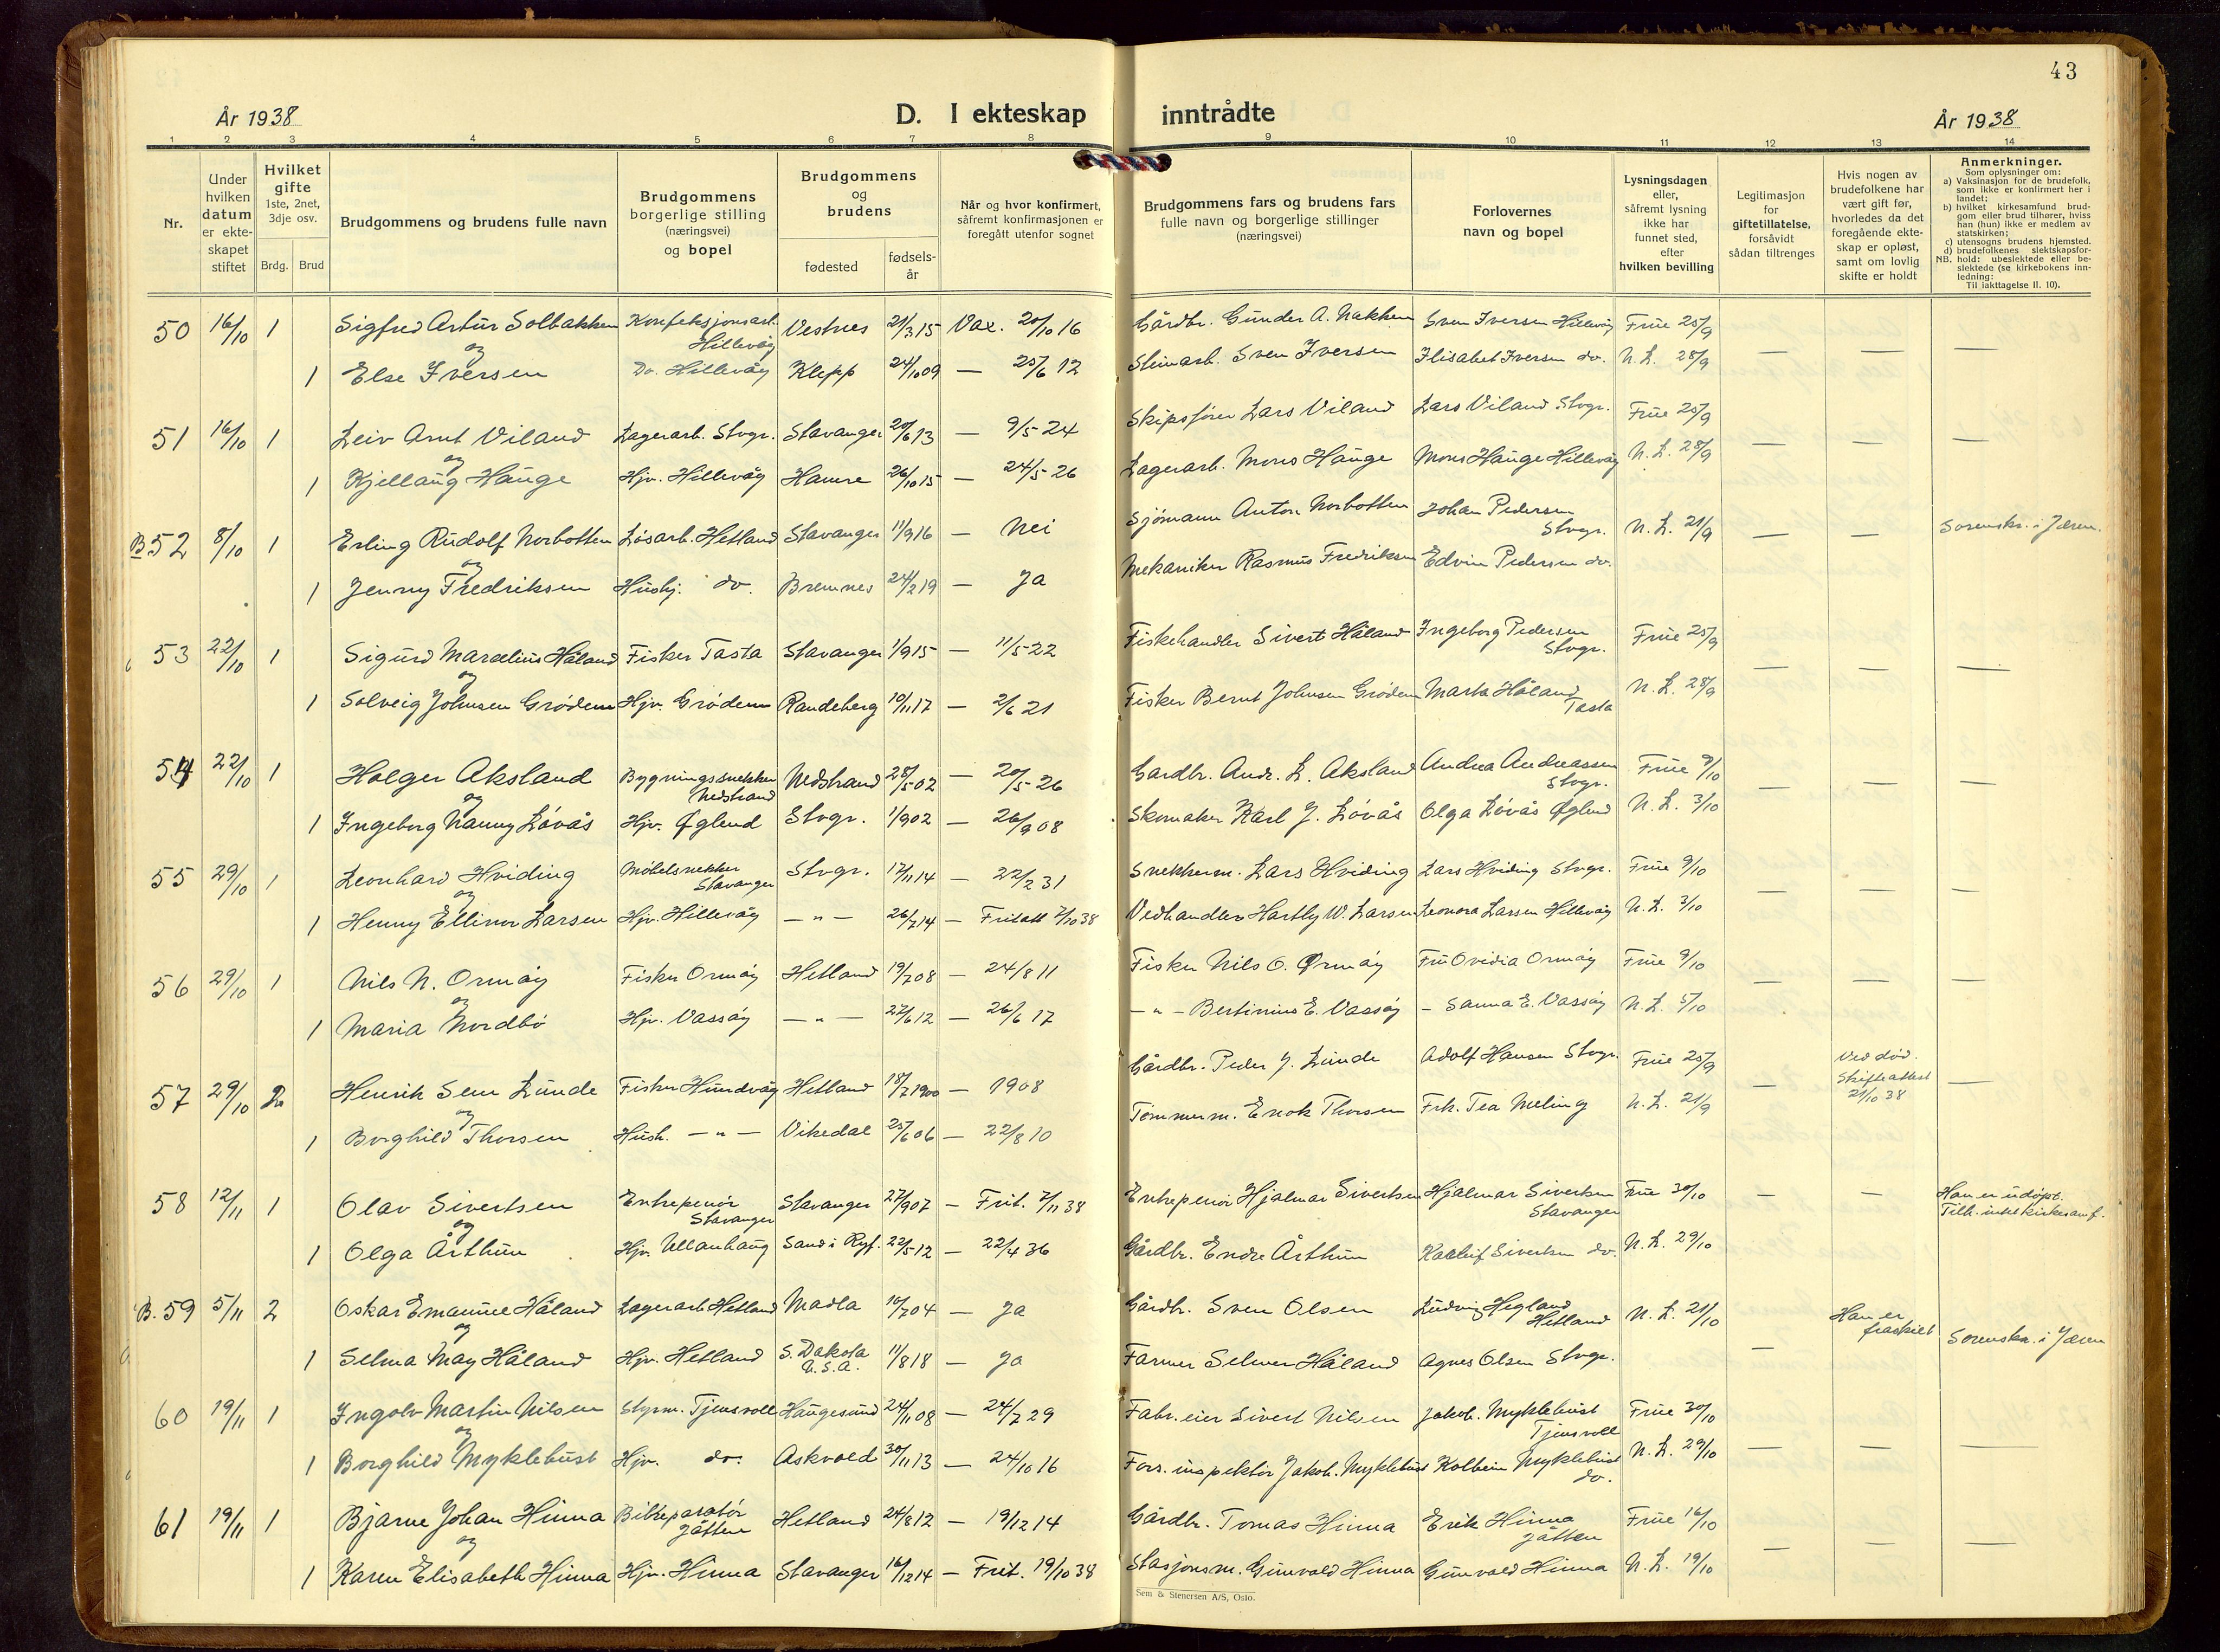 43
År 1938
D. I ekteskap inntrådte
År 1938
1 2 3 4 5 6 7 8 9 10 11 12 13 14
Nr.
Under hvilken datum er ekteskapet stiftet
Hvilket gifte 1ste, 2net, 3dje osv.
Brdg. Brud
Brudgommens og brudens fulle navn
Brudgommens borgerlige stilling (næringsvei) og bopel
Brudgommens og brudens
fødested
fødselsår
Når og hvor konfirmert, såfremt konfirmasjonen er foregått utenfor sognet
Brudgommens fars og brudens fars fulle navn og borgerlige stillinger (næringsvei)
Forlovernes navn og bopel
Lysningsdagen eller, såfremt lysning ikke har funnet sted, efter hvilken bevilling
Legitimasjon for giftetillatelse, forsåvidt sådan tiltrenges
Hvis nogen av brudefolkene har vært gift før, hvorledes da det foregående ekteskap er opløst, samt om lovlig skifte er holdt
Anmerkninger.
Som oplysninger om:
a) Vaksinasjon for de brudefolk, som ikke er konfirmert her i landet;
b) hvilket kirkesamfund brudgom eller brud tilhører, hviss han (hun) ikke er medlem av statskirken;
c) utensogns brudens hjemsted.
d) brudefolkenes slektskapsforhold: ubeslektede eller beslektede (se kirkebokens innledning:
NB.
Til iakttagelse II. 10).
50 16/10 1 Sigfred Artur Solbakken Konfeksjonsarb. Hillevåg Vestnes 21/3 15 Vax. 20/10 16 Gårdbr. Gunder A. Nakken Sven Iversen Hillevåg Frue 25/9 — — —
og
1 Else Iversen Do. Hillevåg Klepp 24/10 09 — 25/6 12 Stenarb. Sven Iversen Elisabet Iversen do. N. L. 28/9
51 16/10 1 Leiv Arnt Viland Lagerarb. Stvgr. Stavanger 20/6 13 — 9/5 24 Skipsfører Lars Viland Lars Viland Stvgr. Frue 25/9 — — —
og
1 Kjellaug Hauge Hjv. Hillevåg Hamre 26/10 15 — 24/5 26 Lagerarb. Mons Hauge Mons Hauge Hillevåg N. L. 28/9
B 52 8/10 1 Erling Rudolf Norbotten Løsarb. Hetland Stavanger 11/9 16 — Nei Sjømann Anton Norbotten Johan Pedersen Stvgr. N. L. 21/9 — — Sorenskr. i Jæren.
og
1 Jenny Fredriksen Hushj. do. Bremnes 24/2 19 — Ja Mekaniker Rasmus Fredriksen Edvin Pedersen do.
53 22/10 1 Sigurd Marselius Håland Fisker Tasta Stavanger 1/9 15 — 11/5 22 Fiskehandler Sivert Håland Ingeborg Pedersen Stvgr. Frue 25/9 — — —
og
1 Solveig Johnsen Grødem Hjv. Grødem Randeberg 10/11 17 — 2/6 21 Fisker Bernt Johnsen Grødem Marta Håland Tasta N. L. 28/9
54 22/10 1 Holger Aksland Bygningssnekker Nedstrand Nedstrand 28/5 02 — 20/5 26 Gardbr. Andr. L. Aksland Andrea Andreassen Stvgr. Frue 9/10 — — —
og
1 Ingeborg Nanny Løvås Hjv. Øglend Stvgr. 1/9 02 — 26/9 08 Skomaker Karl J. Løvås Olga Løvås Øglend N. L. 3/10
55 29/10 1 Leonhard Hviding Møbelsnekker Stavanger Stvgr. 17/11 14 — 22/2 31 Snekkerm. Lars Hviding Lars Hviding Stvgr. Frue 9/10 — — —
og
1 Henny Ellinor Larsen Hjv. Hillevåg — " — 26/7 14 — Fritatt 7/10 38 Vedhandler Hartly W. Larsen Leonora Larsen Hillevåg N. L. 3/10
56 29/10 1 Nils N. Ormøy Fisker Ormøy Hetland 19/7 08 — 24/8 11 Fisker Nils O. Ormøy Fru Ovidia Ormøy Frue 9/10 — — —
og
1 Maria Nordbø Hjv. Vassøy — " — 27/6 12 — 26/6 17 — " — Bertinius E. Vassøy — Sanna E. Vassøy N. L. 5/10
57 29/10 2 Henrik Sem Lunde Fisker Hundvåg Hetland 18/7 1900 — 1908 Gårdbr. Peder J. Lunde Adolf Hansen Stvgr. Frue 25/9 — Ved død. Skifteattest 21/10 38 —
og
1 Borghild Thorsen Hush. — " — Vikedal 25/6 06 — 22/8 10 Tømmerm. Enok Thorsen Frk. Tea Meling N. L. 21/9
58 12/11 1 Olav Sivertsen Entrepenør Stavanger Stavanger 27/9 07 — Frit. 7/11 38 Entrepenør Hjalmar Sivertsen Hjalmar Sivertsen Stavanger Frue 30/10 — — Han er udøpt. Tilh. intet kirkesamf.
og
1 Olga Årthun Hjv. Ullanhaug Sand i Ryf. 22/5 12 — 22/4 36 Gårdbr. Endre Årthun Kalleif Sivertsen do. N. L. 29/10
B. 59 5/11 2 Oskar Emanuel Håland Lagerarb Hetland Madla 10/7 04 — Ja Gårdbr. Sven Olsen Ludvig Hegland Hetland N. L. 21/10 — Han er fraskilt Sorenskr. i Jæren
og
1 Selma May Håland Hjv. Hetland S. Dakota U.S.A. 11/8 18 — Ja Farmer Selmer Håland Agnes Olsen Stvgr.
60 19/11 1 Ingolv Martin Nilsen Styrm. Tjensvoll Haugesund 24/11 08 — 24/7 29 Fabr. eier Sivert Nilsen Jakob. Myklebust Tjensvoll Frue 30/10 — — —
og
1 Borghild Myklebust Hjv. do. Askvold 30/11 13 — 24/10 16 Fors. inspektør Jakob. Myklebust Kolbein Myklebust do. N. L. 29/10
61 19/11 1 Bjarne Johan Hinna Bilreparatør Jåtten Hetland 24/8 12 — 19/12 14 Gårdbr. Tomas Hinna Erik Hinna Jåtten Frue 16/10 — — —
og
1 Karen Elisabeth Hinna Hjv. Hinna Stavanger 16/12 14 — Frit. 19/10 38 Stasjonsm. Gunvald Hinna Gunvald Hinna N. L. 19/10
Sem & Stenersen A/S, Oslo.